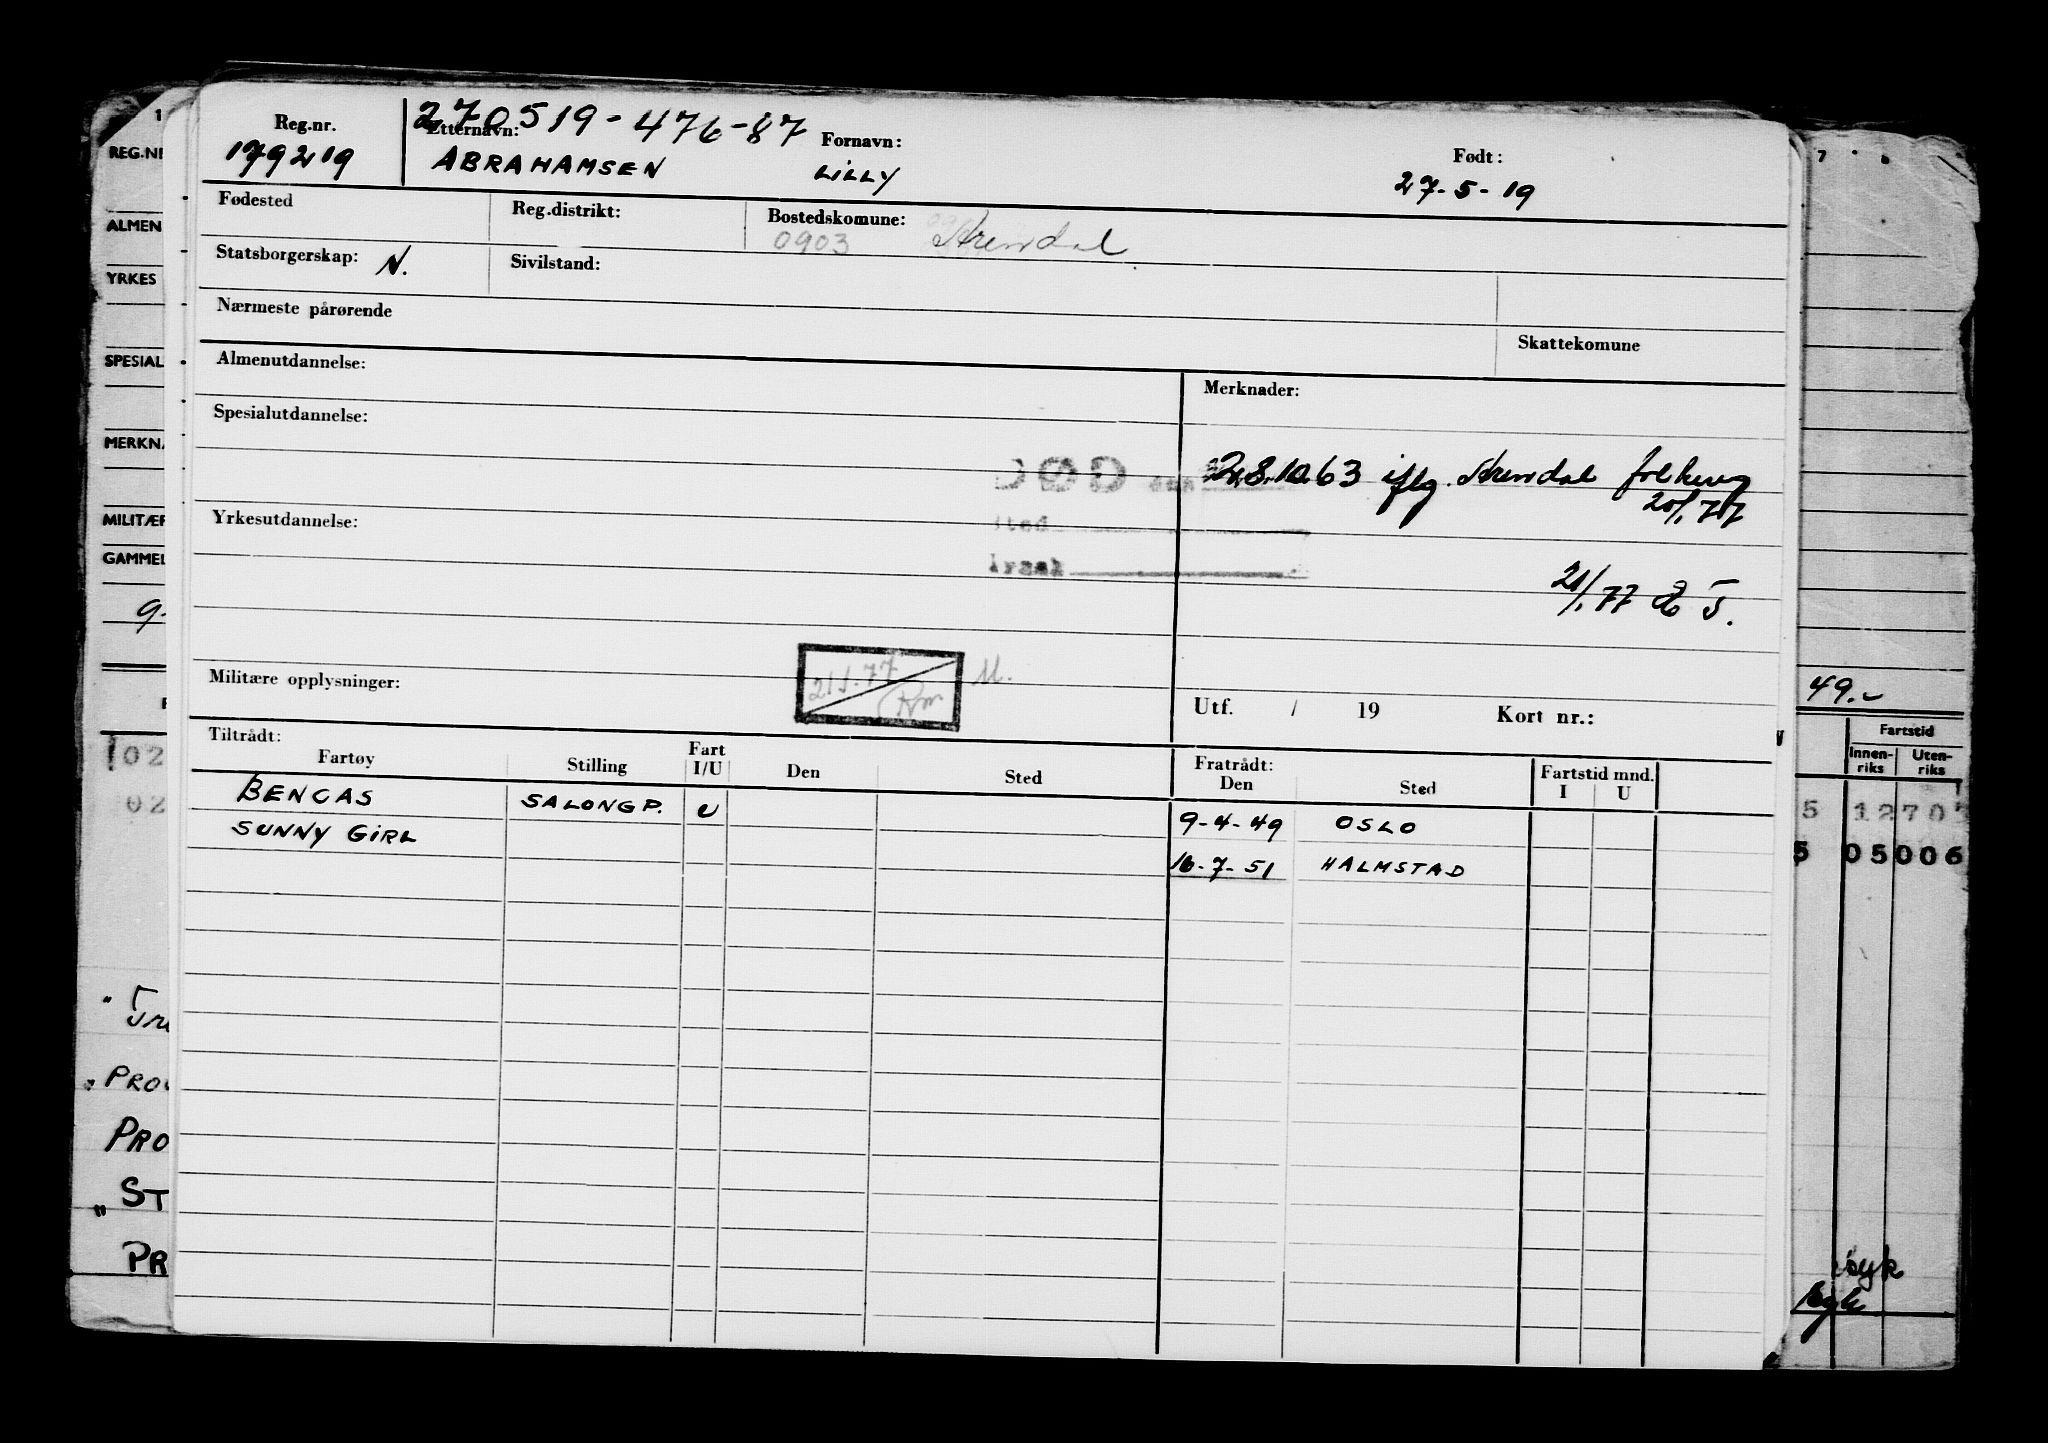 270519-476-87
Reg.nr. Etternavn: Fornavn: Født:
179219 ABRAHAMSEN LILLY 27-5-19
Fødested Reg.distrikt: Bostedskomune:
0903 Arendal
Statsborgerskap: N. Sivilstand:
Nærmeste pårørende
Skattekomune
Almenutdannelse: Merknader:
Spesialutdannelse:
DØD den 28.10.63 iflg. Arendal folkereg
sted 20/1 77
Årsak
Yrkesutdannelse:
21/1 77
Militære opplysninger: 21/1.77
Utf. / 19 Kort nr.:
Tiltrådt: Fratrådt:
Fartøy Stilling Fart I/U Den Sted Den Sted Fartstid mnd. I U
BENCAS SALONGP. U 9-4-49 OSLO
SUNNY GIRL 16-7-51 HALMSTAD
REG.NR
ALMEN
YRKES
SPESIAL
MERKNA
MILITÆR
GAMMEL
9-
02
02
PRO
PRO
ST
PR
7
49.-
Fartstid
Innen-riks Uten-riks
5 12707
5 05006